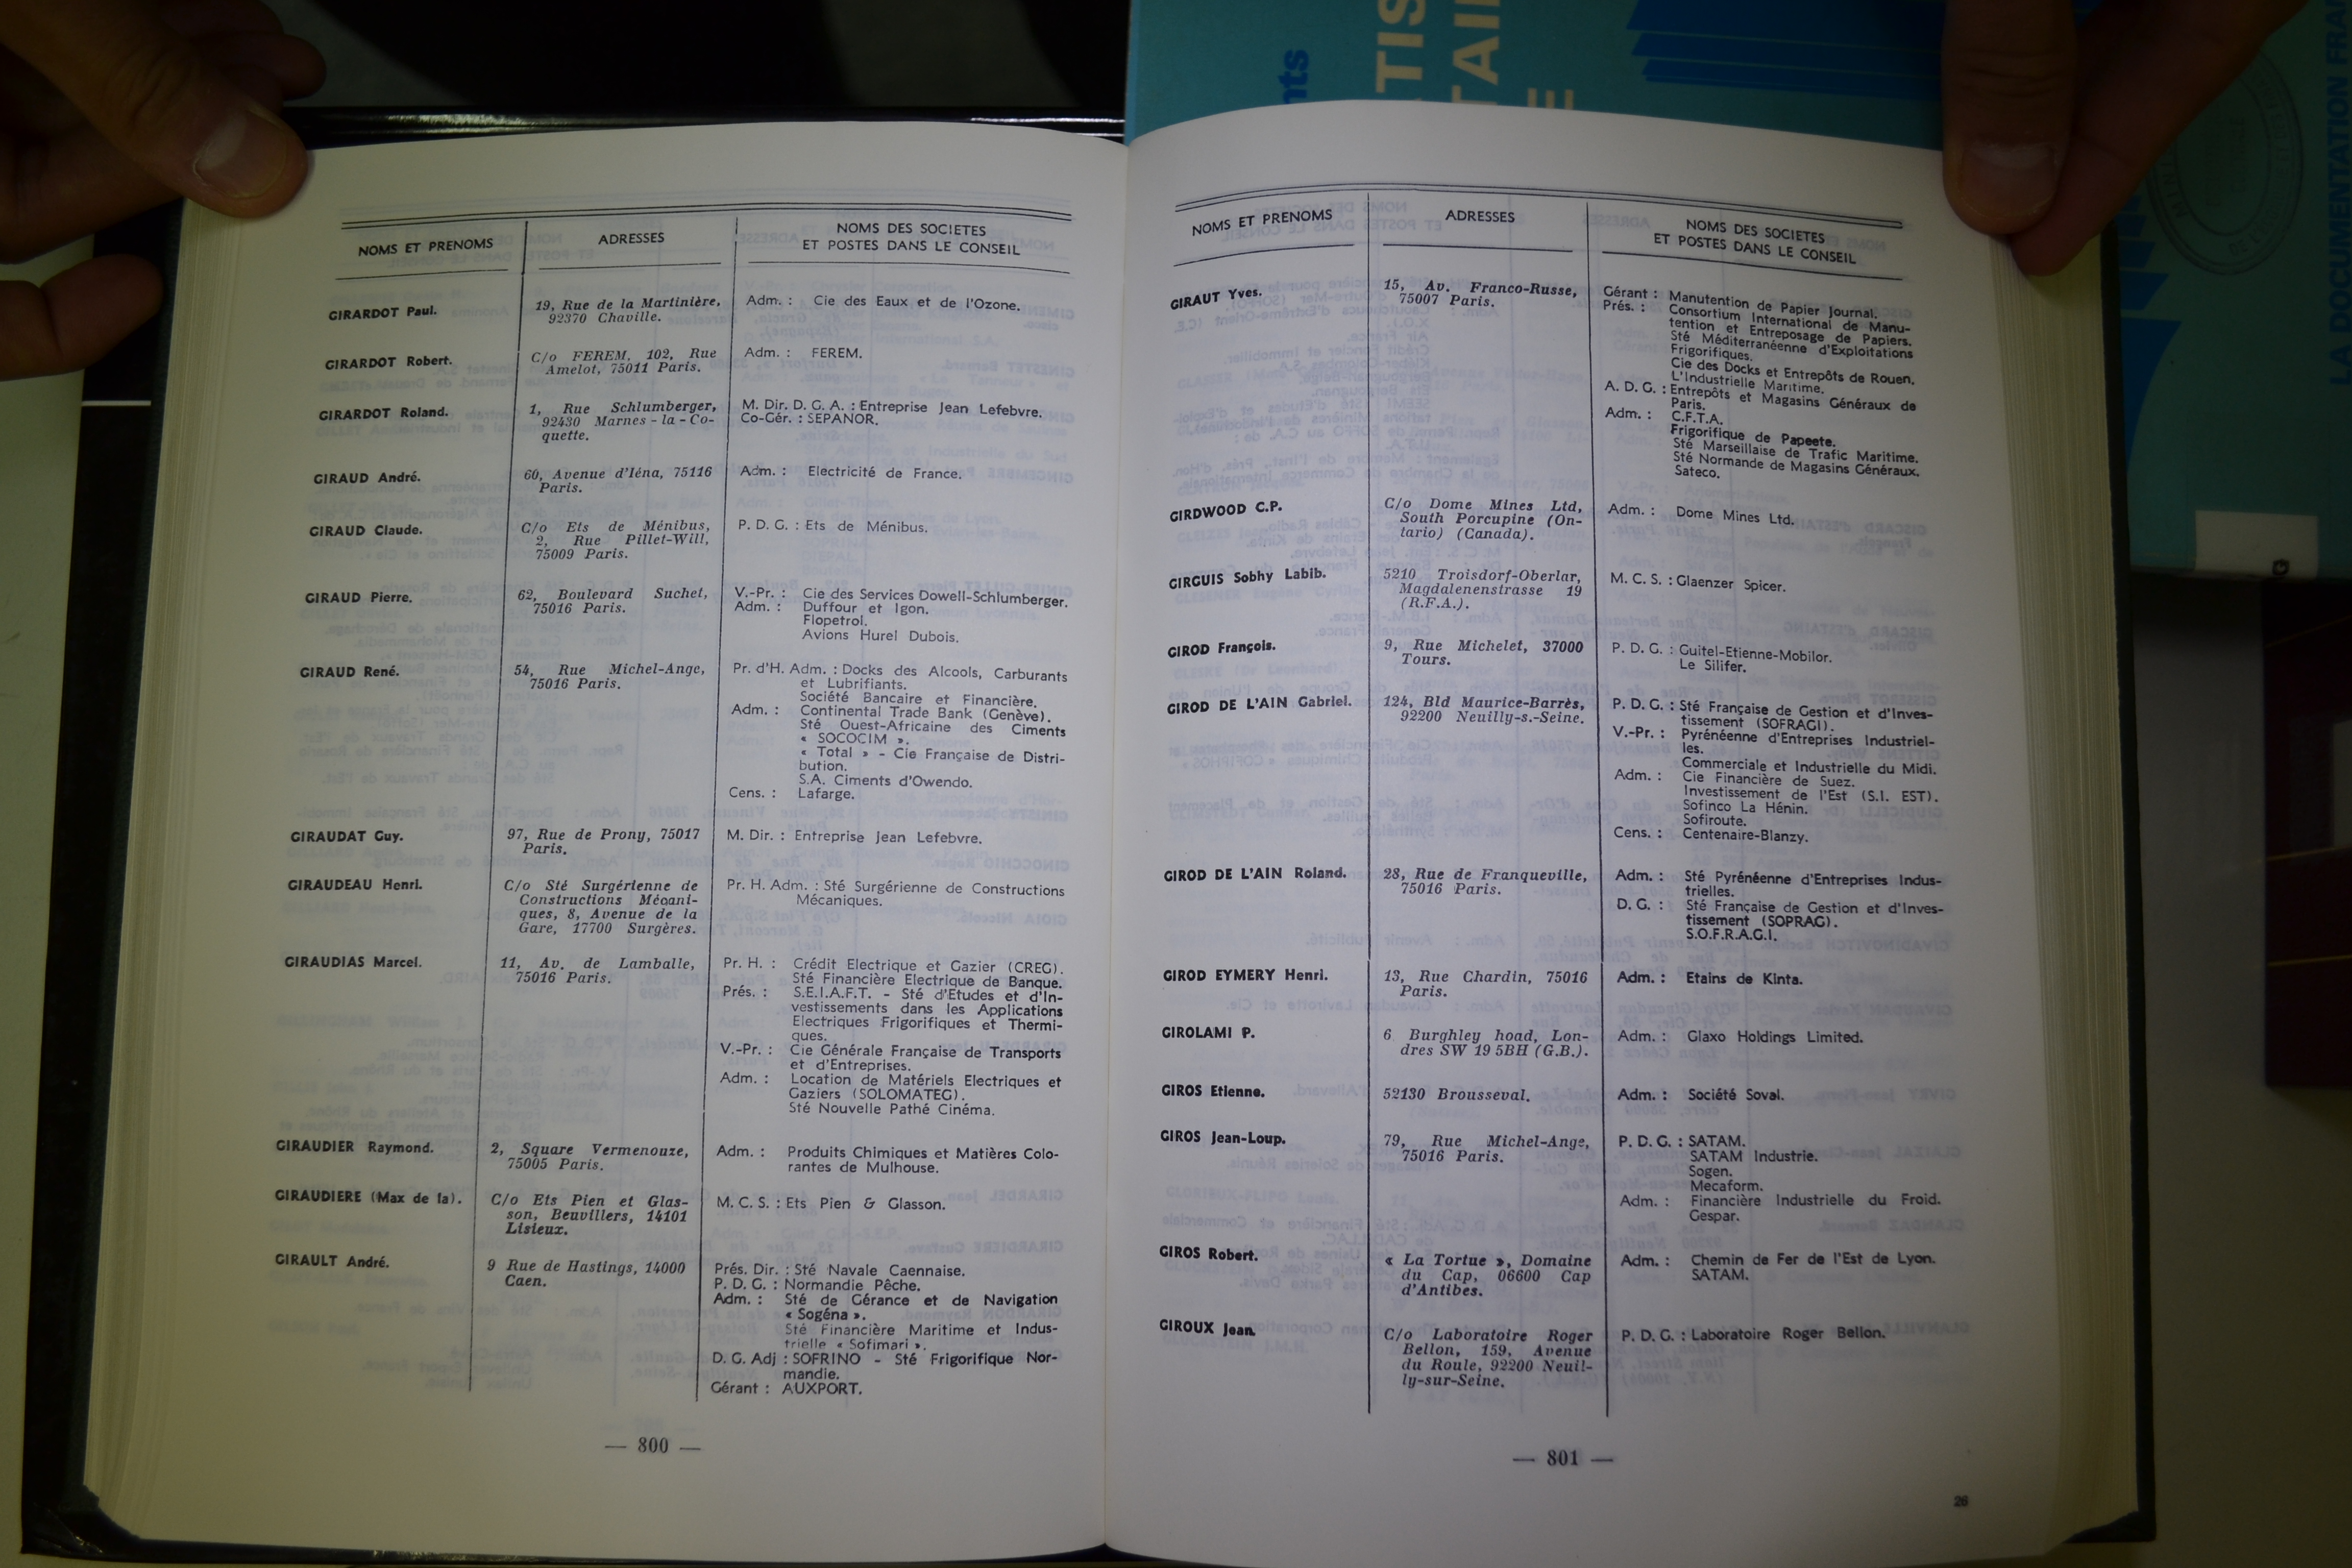 NOMS ET PRENOMS
ADRESSES
NOMS DES SOCIETES
ET POSTES DANS LE CONSEIL
GIRARDOT Paul.
19, Rue de la Martinière,
92370 Chaville.
Adm. : Cie des Eaux et de l'Ozone.
GIRARDOT Robert.
C/o FEREM, 102, Rue
Amelot, 75011 Paris.
Adm. : FEREM.
GIRARDOT Roland.
1, Rue Schlumberger,
92430 Marnes-la-Co-
quette.
M. Dir. D. G. A. : Entreprise Jean Lefebvre.
Co-Gér. : SEPANOR.
GIRAUD André.
60, Avenue d'Iéna, 75116
Paris.
Adm. : Electricité de France.
GIRAUD Claude.
C/o Ets de Ménibus,
2, Rue Pillet-Will,
75009 Paris.
P. D. G. : Ets de Ménibus.
GIRAUD Pierre.
62, Boulevard Suchet,
75016 Paris.
V.-Pr. : Cie des Services Dowell-Schlumberger.
Adm. : Duffour et Igon.
Flopetrol.
Avions Hurel Dubois.
GIRAUD René.
54, Rue Michel-Ange,
75016 Paris.
Pr. d'H. Adm. : Docks des Alcools, Carburants
et Lubrifiants.
Société Bancaire et Financière.
Adm. : Continental Trade Bank (Genève).
Sté Ouest-Africaine des Ciments
« SOCOCIM ».
« Total » - Cie Française de Distri-
bution.
S.A. Ciments d'Owendo.
Cens. : Lafarge.
GIRAUDAT Guy.
97, Rue de Prony, 75017
Paris.
M. Dir. : Entreprise Jean Lefebvre.
GIRAUDEAU Henri.
C/o Sté Surgérienne de
Constructions Mécani-
ques, 8, Avenue de la
Gare, 17700 Surgères.
Pr. H. Adm. : Sté Surgérienne de Constructions
Mécaniques.
GIRAUDIAS Marcel.
11, Av. de Lamballe,
75016 Paris.
Pr. H. : Crédit Electrique et Gazier (CREG).
Sté Financière Electrique de Banque.
Prés. : S.E.I.A.F.T. - Sté d'Etudes et d'In-
vestissements dans les Applications
Electriques Frigorifiques et Thermi-
ques.
V.-Pr. : Cie Générale Française de Transports
et d'Entreprises.
Adm. : Location de Matériels Electriques et
Gaziers (SOLOMATEG).
Sté Nouvelle Pathé Cinéma.
GIRAUDIER Raymond.
2, Square Vermenouze,
75005 Paris.
Adm. : Produits Chimiques et Matières Colo-
rantes de Mulhouse.
GIRAUDIERE (Max de la).
C/o Ets Pien et Glas-
son, Beuvillers, 14101
Lisieux.
M. C. S. : Ets Pien & Glasson.
GIRAULT André.
9 Rue de Hastings, 14000
Caen.
Prés. Dir. : Sté Navale Caennaise.
P. D. G. : Normandie Pêche.
Adm. : Sté de Gérance et de Navigation
« Sogéna ».
Sté Financière Maritime et Indus-
trielle « Sofimari ».
D. G. Adj : SOFRINO - Sté Frigorifique Nor-
mandie.
Gérant : AUXPORT.
— 800 —
NOMS ET PRENOMS
ADRESSES
NOMS DES SOCIETES
ET POSTES DANS LE CONSEIL
GIRAUT Yves.
15, Av. Franco-Russe,
75007 Paris.
Gérant : Manutention de Papier Journal.
Prés. : Consortium International de Manu-
tention et Entreposage de Papiers.
Sté Méditerranéenne d'Exploitations
Frigorifiques.
Cie des Docks et Entrepôts de Rouen.
L'Industrielle Maritime.
A. D. G. : Entrepôts et Magasins Généraux de
Paris.
Adm. : C.F.T.A.
Frigorifique de Papeete.
Sté Marseillaise de Trafic Maritime.
Sté Normande de Magasins Généraux.
Sateco.
GIRDWOOD C.P.
C/o Dome Mines Ltd,
South Porcupine (On-
tario) (Canada).
Adm. : Dome Mines Ltd.
GIRGUIS Sobhy Labib.
5210 Troisdorf-Oberlar,
Magdalenenstrasse 19
(R.F.A.).
M. C. S. : Glaenzer Spicer.
GIROD François.
9, Rue Michelet, 37000
Tours.
P. D. G. : Guitel-Etienne-Mobilor.
Le Silifer.
GIROD DE L'AIN Gabriel.
124, Bld Maurice-Barrès,
92200 Neuilly-s.-Seine.
P. D. G. : Sté Française de Gestion et d'Inves-
tissement (SOFRAGI).
V.-Pr. : Pyrénéenne d'Entreprises Industriel-
les.
Commerciale et Industrielle du Midi.
Adm. : Cie Financière de Suez.
Investissement de l'Est (S.I. EST).
Sofinco La Hénin.
Sofiroute.
Cens. : Centenaire-Blanzy.
GIROD DE L'AIN Roland.
28, Rue de Franqueville,
75016 Paris.
Adm. : Sté Pyrénéenne d'Entreprises Indus-
trielles.
D. G. : Sté Française de Gestion et d'Inves-
tissement (SOPRAG).
S.O.F.R.A.G.I.
GIROD EYMERY Henri.
13, Rue Chardin, 75016
Paris.
Adm. : Etains de Kinta.
GIROLAMI P.
6 Burghley hoad, Lon-
dres SW 19 5BH (G.B.).
Adm. : Glaxo Holdings Limited.
GIROS Etienne.
52130 Brousseval.
Adm. : Société Soval.
GIROS Jean-Loup.
79, Rue Michel-Ange,
75016 Paris.
P. D. G. : SATAM.
SATAM Industrie.
Sogen.
Mecaform.
Adm. : Financière Industrielle du Froid.
Gespar.
GIROS Robert.
« La Tortue », Domaine
du Cap, 06600 Cap
d'Antibes.
Adm. : Chemin de Fer de l'Est de Lyon.
SATAM.
GIROUX Jean.
C/o Laboratoire Roger
Bellon, 159, Avenue
du Roule, 92200 Neuil-
ly-sur-Seine.
P. D. G. : Laboratoire Roger Bellon.
— 801 —
26
LA DOCUMENTATION FRA